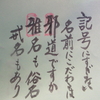 記号にすぎぬ
名前にこだわるは
邪道ですか
雅名も俗名
戒名もあり